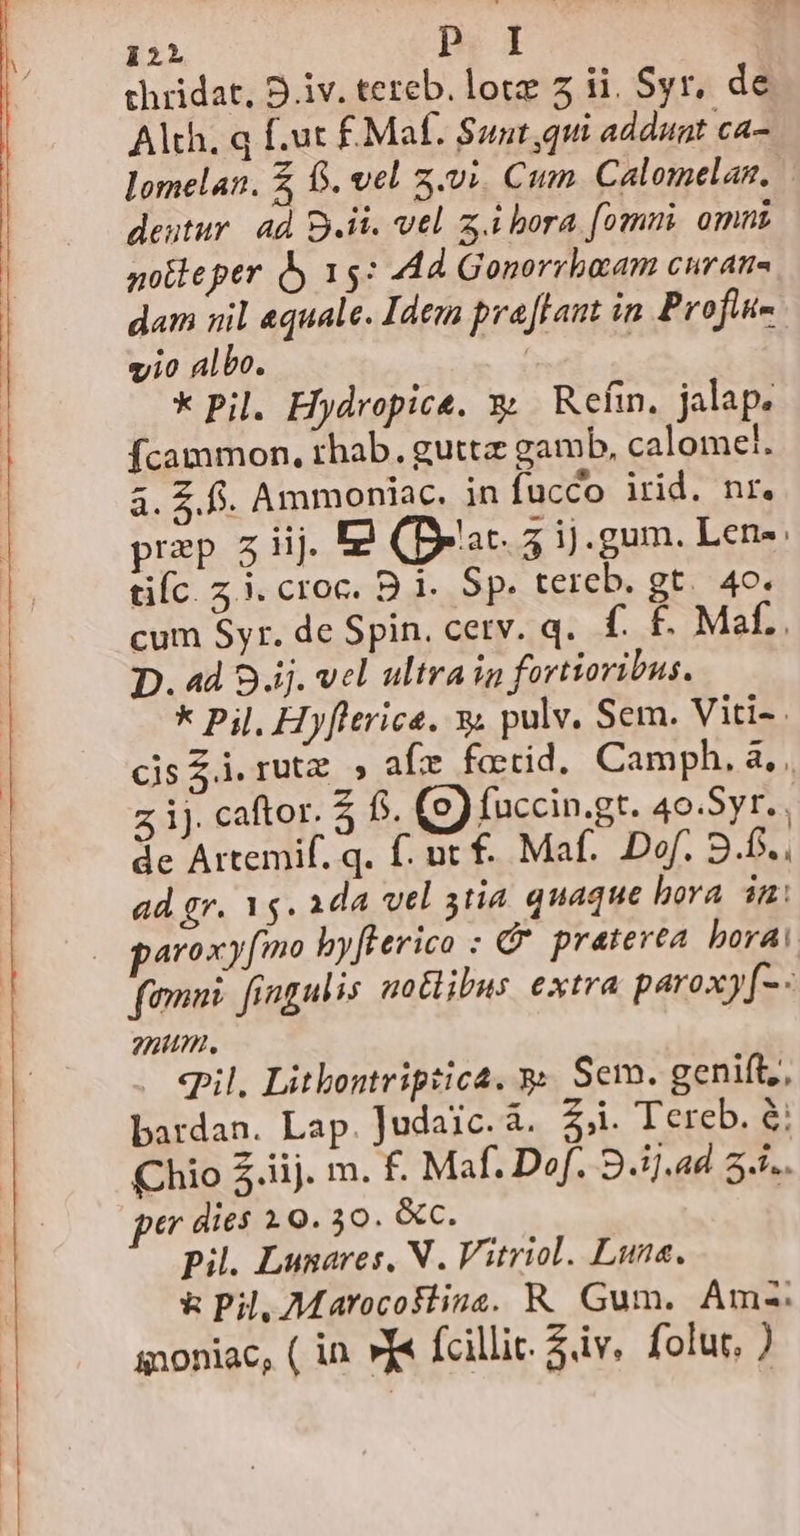 122 P I
thridat. ℈.iv. tereb. lotæ ʒ ii. Syr. de
Alth. q ſ.ut f.Maſ. Sunt,qui addunt ca-
lomelan. ℥ ß. vel ʒ.vi. Cum Calomelan.
dentur ad ℈.ii. vel ʒ.i hora ſomni omni
nocteper 15: Ad Gonorrhœam curan-
dam nil æquale. Idem præſtant in Proflu-
vio albo.
* Pil. Hydropicæ. ℞ Reſin. jalap.
ſcammon. rhab. guttæ gamb. calomel.
ā. ℥.ß. Ammoniac. in ſucco irid. nr.
præp ʒ iij. lat. ʒ ij.gum. Len-
tiſc. ʒ.i. croc. ℈ i. Sp. tereb. gt. 40.
cum Syr. de Spin. cerv. q. ſ. f. Maſ.
D. ad ℈.ij. vel ultra in fortioribus.
* Pil. Hyſtericæ. ℞ pulv. Sem. Viti-
cis ℥.i. rutæ , aſæ fœtid. Camph. ā.
ʒ ij. caſtor. ℥ ß. ſuccin.gt. 40.Syr.
de Artemiſ. q. ſ. ut f. Maſ. Doſ. ℈.ß.
ad gr. 15. 2da vel 3tia quaque hora in
paroxyſmo hyſterico : & præterea hora
ſomni ſingulis noctibus extra paroxyſ-
mum.
Pil. Lithontripticæ. ℞ Sem. geniſt.
bardan. Lap. Judaïc. ā. ℥.i. Tereb. è
Chio ℥.iij. m. f. Maſ. Doſ. ℈.ij.ad ʒ.i.
per dies 20. 30. &c.
Pil. Lunares. V. Vitriol. Lunæ.
* Pil. Marocoſtinæ. R Gum. Am-
moniac, ( in ſcillit. ℥.iv. ſolut. )